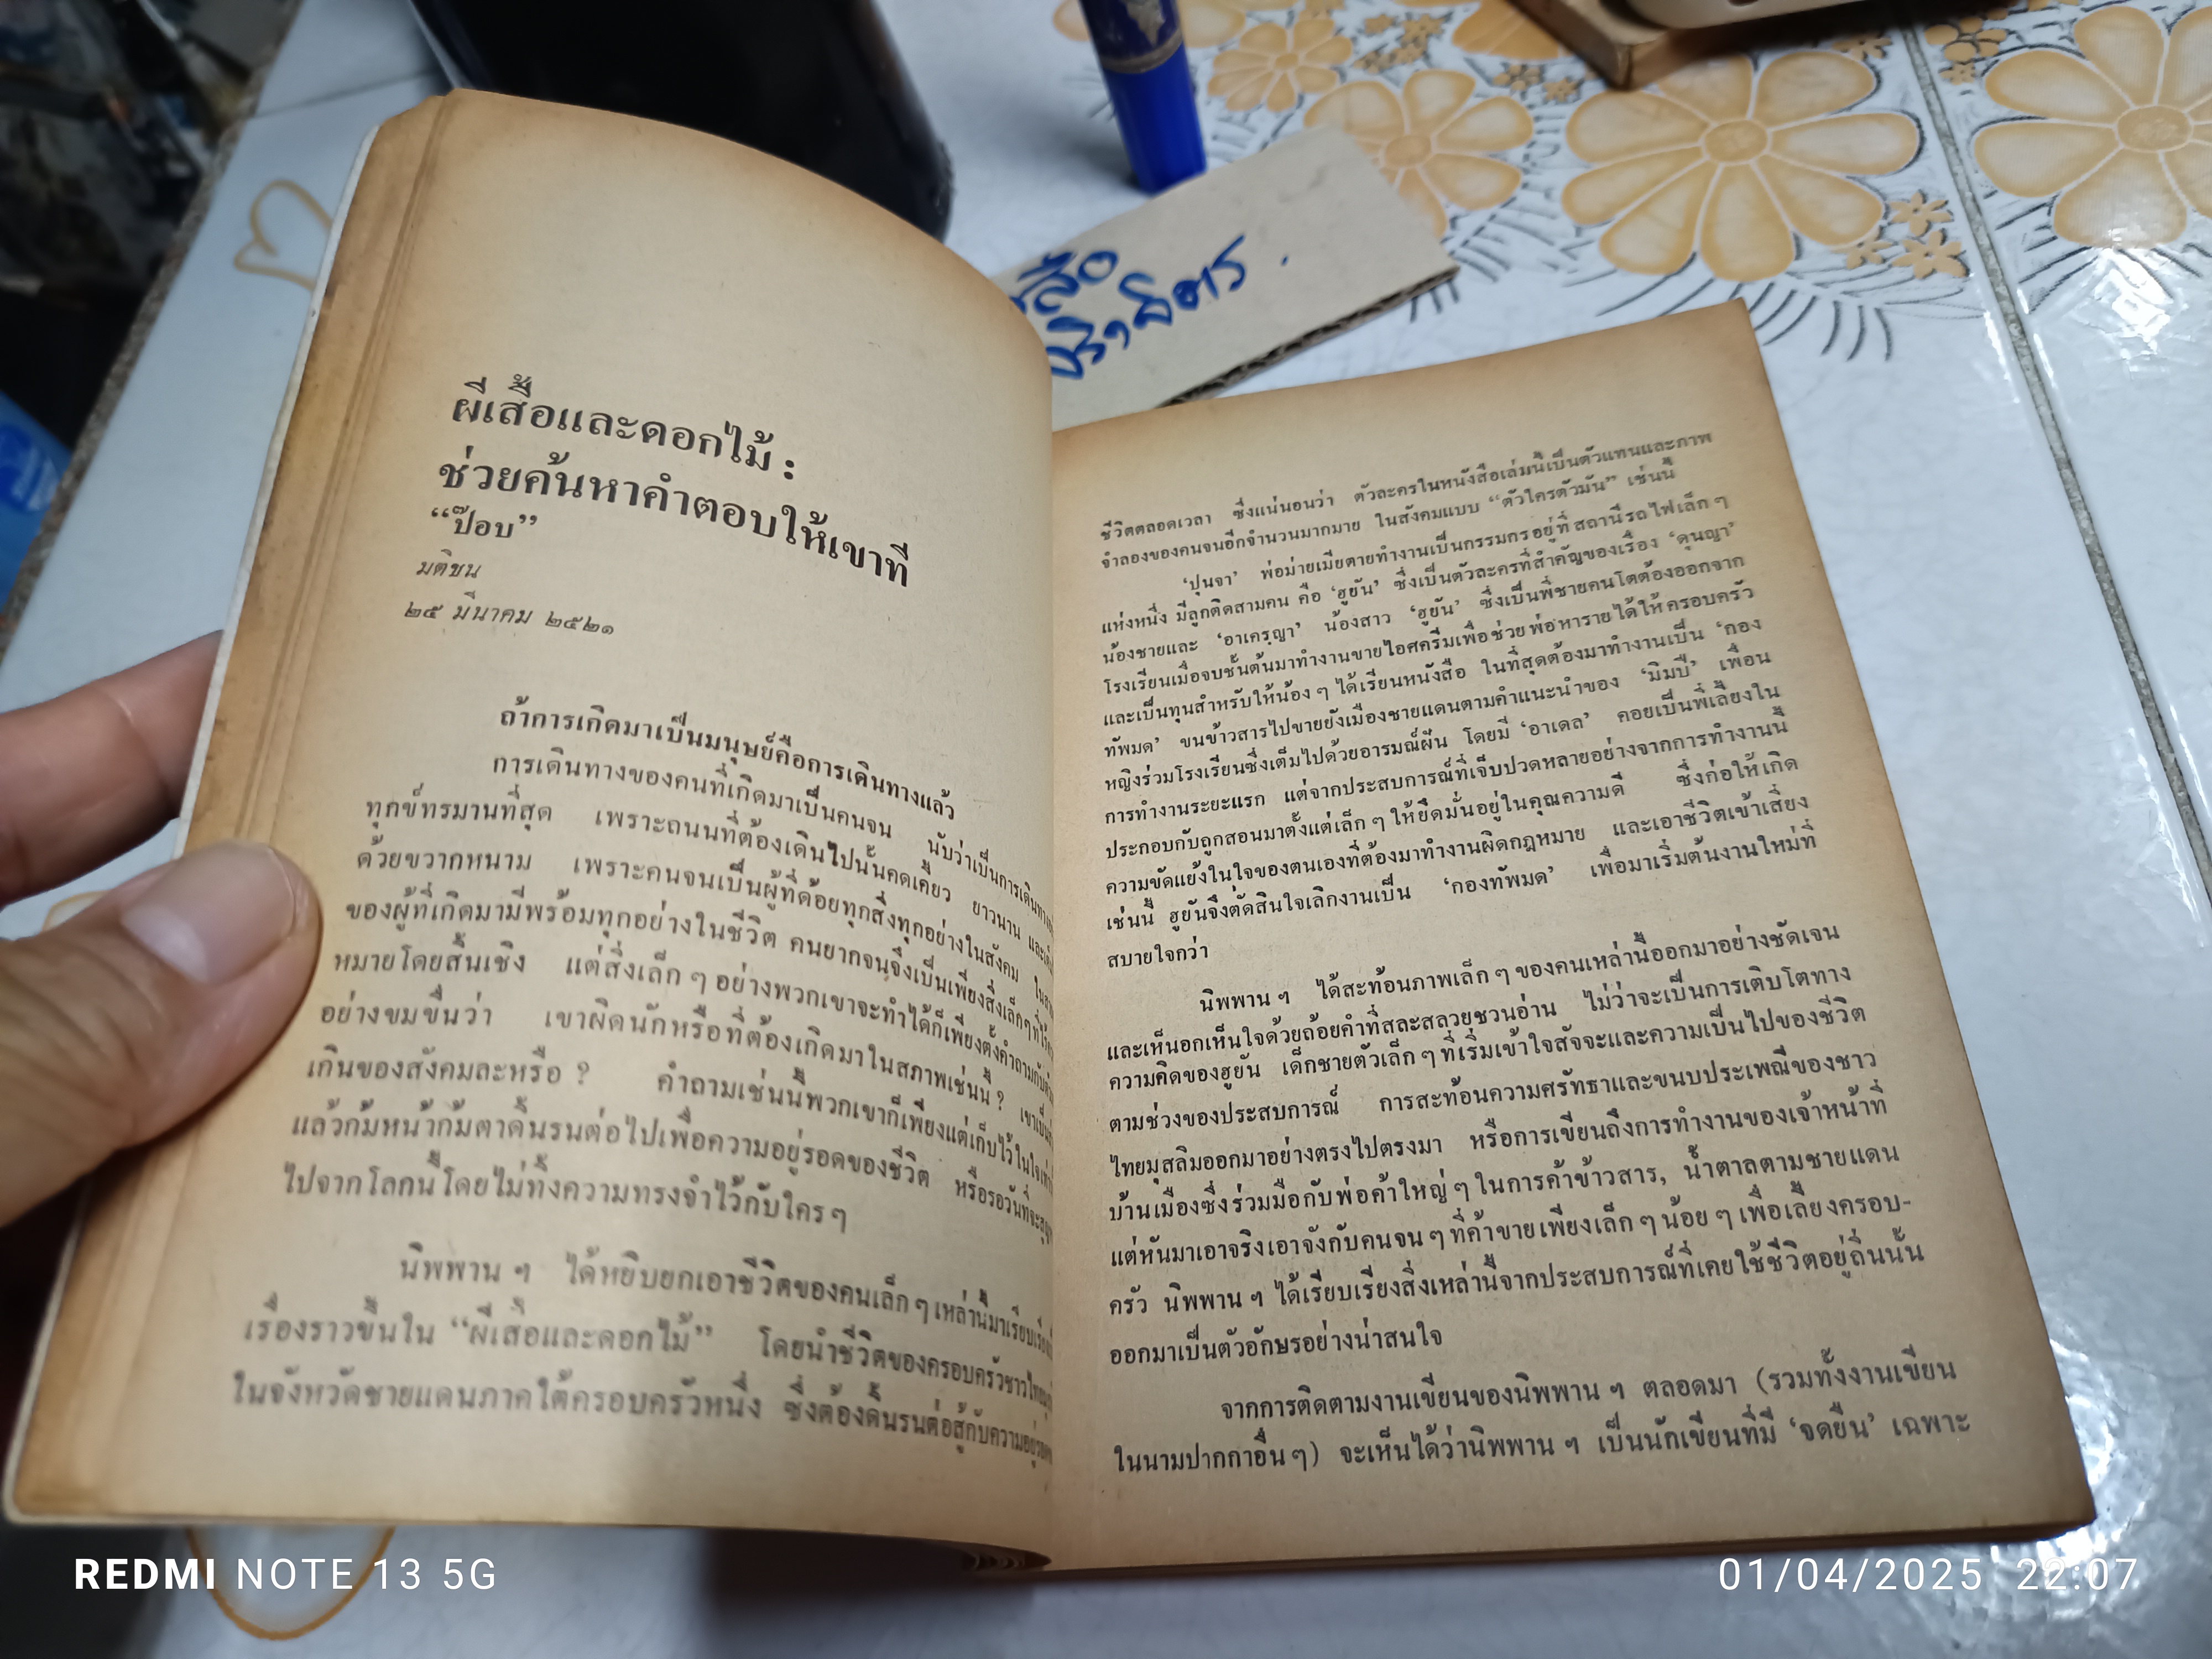 ผีเสื้อและดอกไม้ :
ช่วยค้นหาคำตอบให้เขาที
“ป๊อบ”
มติชน
๒๕ มีนาคม ๒๕๒๑
ถ้าการเกิดมาเป็นมนุษย์คือการเดินทางแล้ว
การเดินทางของคนที่เกิดมาเป็นคนจน นับว่าเป็นการเดินทาง
ทุกข์ทรมานที่สุด เพราะถนนที่ต้องเดินไปนั้นคดเคี้ยว ยาวนาน
ด้วยขวากหนาม เพราะคนจนเป็นผู้ที่ด้อยทุกสิ่งทุกอย่างในสังคม
ของผู้ที่เกิดมามีพร้อมทุกอย่างในชีวิต คนยากจนจึงเป็นเพียงสิ่งเล็กๆ ที่
หมายโดยสิ้นเชิง แต่สิ่งเล็ก ๆ อย่างพวกเขาจะทำได้ก็เพียงตั้งคำถามกับ
อย่างขมขื่นว่า เขาผิดนักหรือที่ต้องเกิดมาในสภาพเช่นนี้ ?
เกินของสังคมละหรือ ? คำถามเช่นนี้พวกเขาก็เพียงแต่เก็บไว้ในใจ
แล้วก้มหน้าก้มตาดิ้นรนต่อไปเพื่อความอยู่รอดของชีวิต หรือรอวันที่จะ
ไปจากโลกนี้โดยไม่ทิ้งความทรงจำไว้กับใคร ๆ
นิพพาน ฯ ได้หยิบยกเอาชีวิตของคนเล็ก ๆ เหล่านี้มา
เรื่องราวขึ้นใน “ผีเสื้อและดอกไม้” โดยนำชีวิตของครอบครัวชาว
ในจังหวัดชายแดนภาคใต้ครอบครัวหนึ่ง ซึ่งต้องดิ้นรนต่อสู้กับความ
ชีวิตตลอดเวลา ซึ่งแน่นอนว่า ตัวละครในหนังสือเล่มนี้เป็นตัวแทนและภาพ
จำลองของคนจนอีกจำนวนมากมาย ในสังคมแบบ “ตัวใครตัวมัน” เช่นนี้
‘ปุนจา’ พ่อม่ายเมียตายทำงานเป็นกรรมกรอยู่ที่สถานีรถไฟเล็ก ๆ
แห่งหนึ่ง มีลูกติดสามคน คือ ‘ฮูยัน’ ซึ่งเป็นตัวละครที่สำคัญของเรื่อง ‘ดุนญา’
น้องชายและ ‘อาเครฺญา’ น้องสาว ‘ฮูยัน’ ซึ่งเป็นพี่ชายคนโตต้องออกจาก
โรงเรียนเมื่อจบชั้นต้นมาทำงานขายไอศครีมเพื่อช่วยพ่อหารายได้ให้ครอบครัว
และเป็นทุนสำหรับให้น้อง ๆ ได้เรียนหนังสือ ในที่สุดต้องมาทำงานเป็น ‘กอง
ทัพมด’ ขนข้าวสารไปขายยังเมืองชายแดนตามคำแนะนำของ ‘มิมปี’ เพื่อน
หญิงร่วมโรงเรียนซึ่งเต็มไปด้วยอารมณ์ฝัน โดยมี ‘อาเดล’ คอยเป็นพี่เลี้ยงใน
การทำงานระยะแรก แต่จากประสบการณ์ที่เจ็บปวดหลายอย่างจากการทำงานนี้
ประกอบกับถูกสอนมาตั้งแต่เล็ก ๆ ให้ยึดมั่นอยู่ในคุณความดี ซึ่งก่อให้เกิด
ความขัดแย้งในใจของตนเองที่ต้องมาทำงานผิดกฎหมาย และเอาชีวิตเข้าเสี่ยง
เช่นนี้ ฮูยันจึงตัดสินใจเลิกงานเป็น ‘กองทัพมด’ เพื่อมาเริ่มต้นงานใหม่ที่
สบายใจกว่า
นิพพาน ฯ ได้สะท้อนภาพเล็ก ๆ ของคนเหล่านี้ออกมาอย่างชัดเจน
และเห็นอกเห็นใจด้วยถ้อยคำที่สละสลวยชวนอ่าน ไม่ว่าจะเป็นการเติบโตทาง
ความคิดของฮูยัน เด็กชายตัวเล็ก ๆ ที่เริ่มเข้าใจสัจจะและความเป็นไปของชีวิต
ตามช่วงของประสบการณ์ การสะท้อนความศรัทธาและขนบประเพณีของชาว
ไทยมุสลิมออกมาอย่างตรงไปตรงมา หรือการเขียนถึงการทำงานของเจ้าหน้าที่
บ้านเมืองซึ่งร่วมมือกับพ่อค้าใหญ่ ๆ ในการค้าข้าวสาร, น้ำตาลตามชายแดน
แต่หันมาเอาจริงเอาจังกับคนจน ๆ ที่ค้าขายเพียงเล็ก ๆ น้อย ๆ เพื่อเลี้ยงครอบ-
ครัว นิพพาน ฯ ได้เรียบเรียงสิ่งเหล่านี้จากประสบการณ์ที่เคยใช้ชีวิตอยู่ถิ่นนั้น
ออกมาเป็นตัวอักษรอย่างน่าสนใจ
จากการติดตามงานเขียนของนิพพาน ฯ ตลอดมา (รวมทั้งงานเขียน
ในนามปากกาอื่น ๆ) จะเห็นได้ว่านิพพาน ฯ เป็นนักเขียนที่มี ‘จุดยืน’ เฉพาะ
REDMI NOTE 13 5G
01/04/2025 22:07